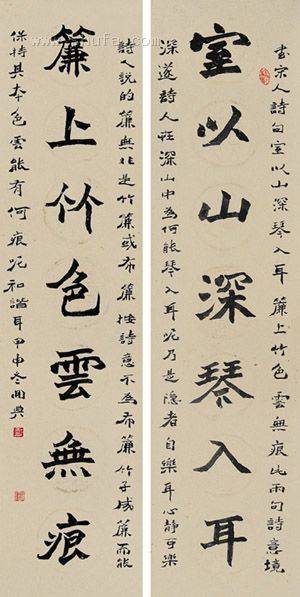 書宗人詩句室以山深琴入耳簾上竹色雲無痕此兩句詩意境
室以山深琴入耳
深邃詩人在深山中為何能琴入耳呢乃是隱者自樂耳心靜可樂
詩人說的簾無非是竹簾或布簾按詩意不為布簾竹子成簾而能
簾上竹色雲無痕
保持其本色雲能有何痕呢和諧耳甲申冬開興